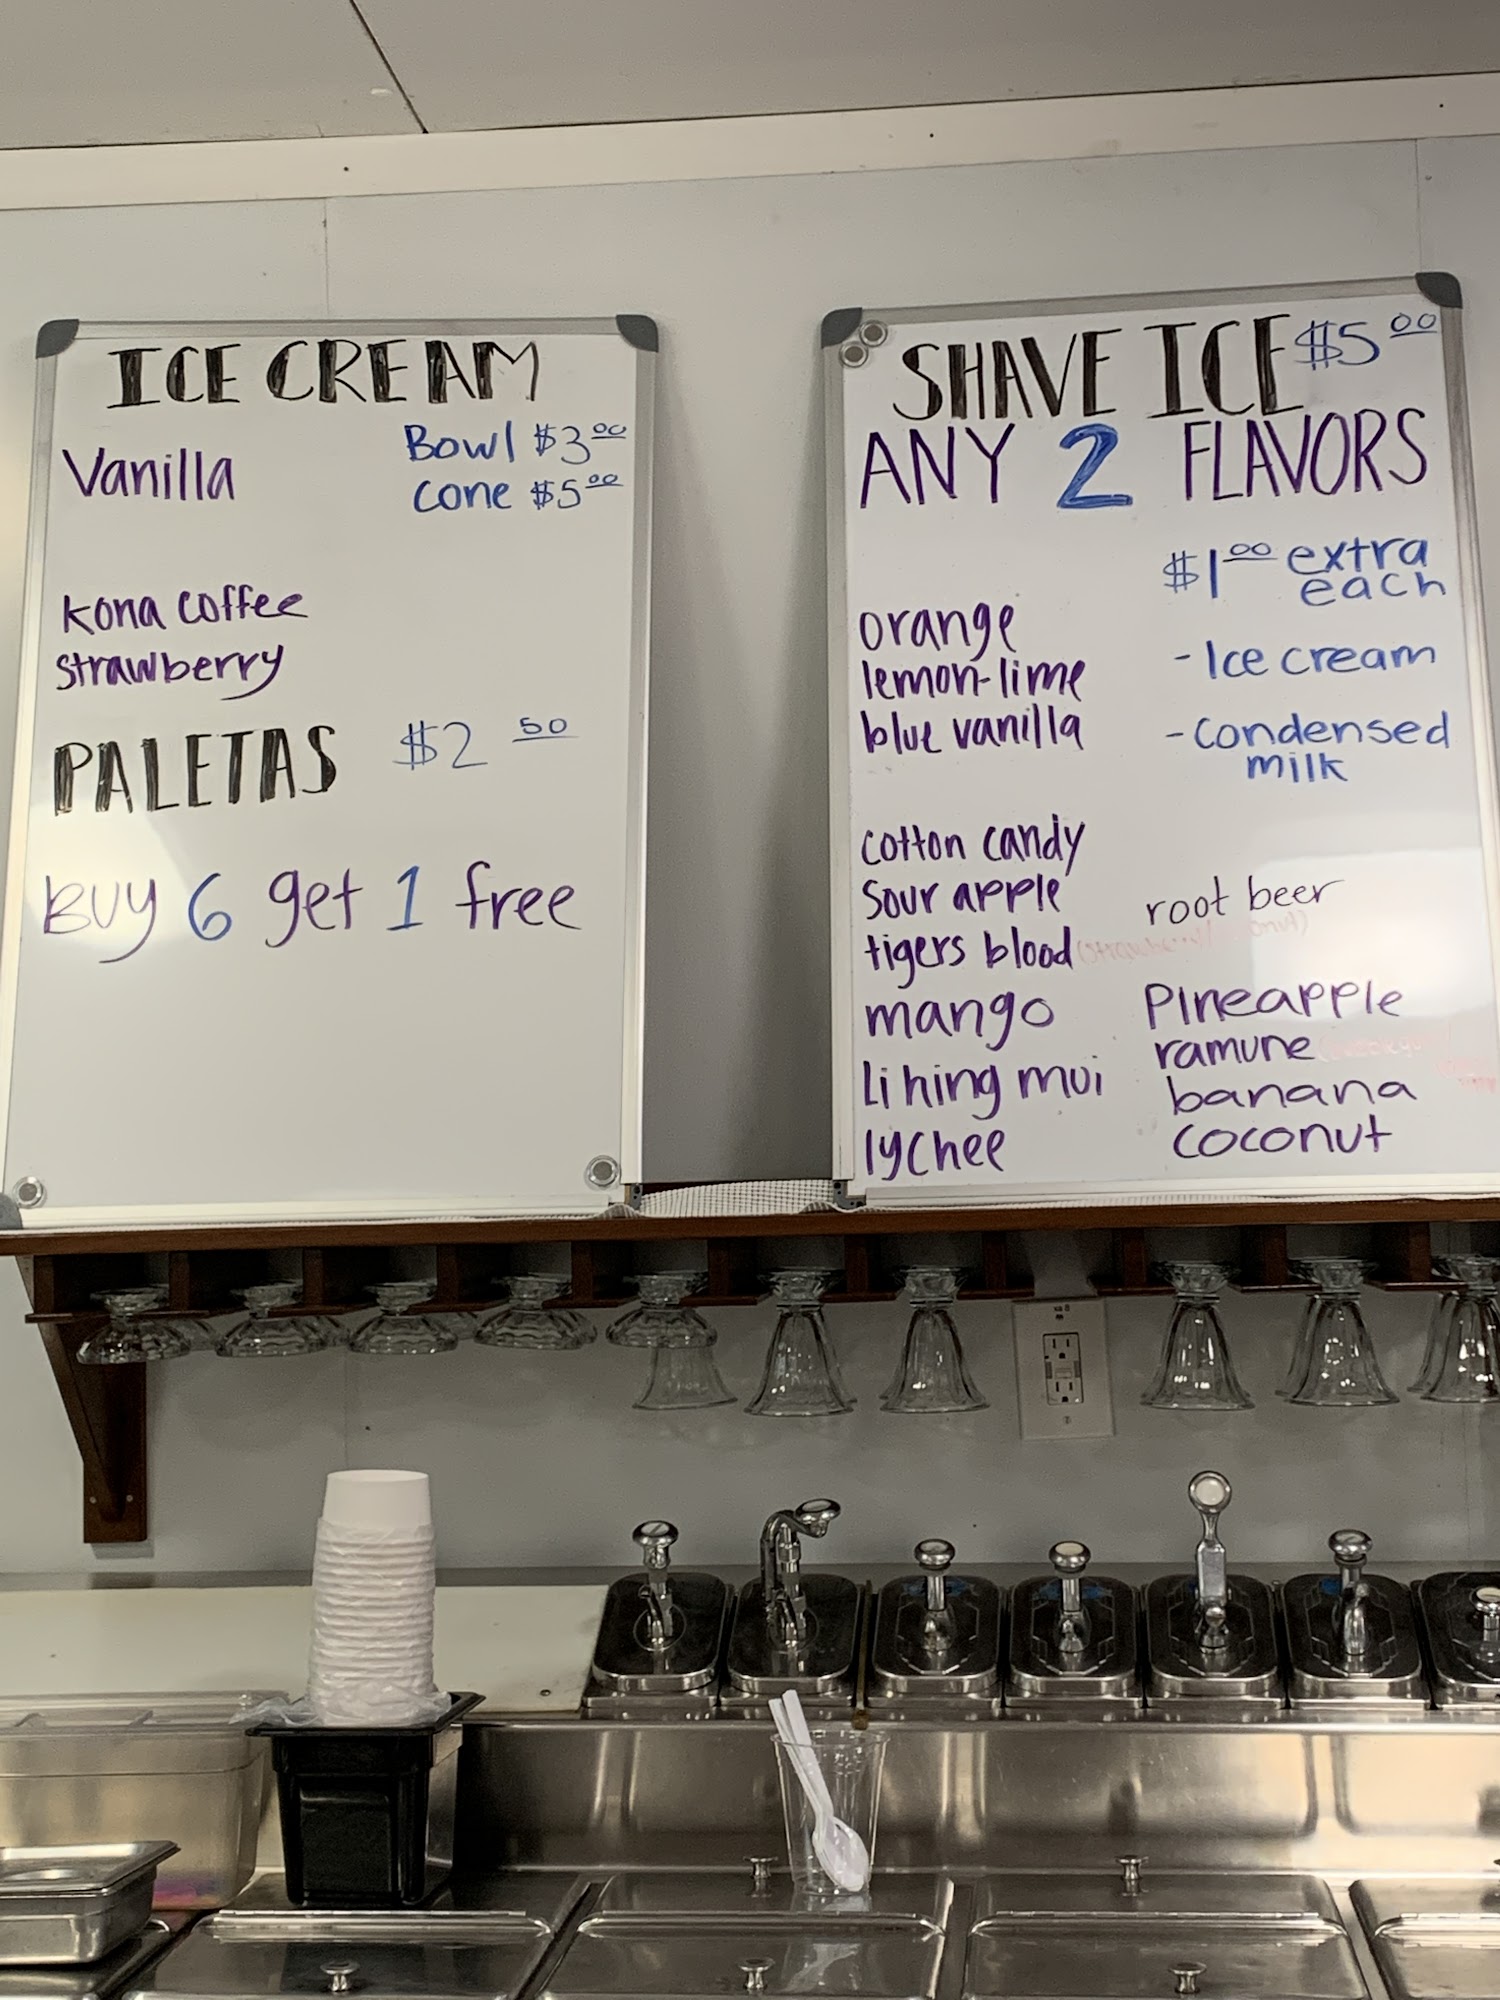 ICE CREAM
Vanilla
Bowl $3.00
cone $5.00
kona coffee
strawberry
PALETAS $2.50
Buy 6 get 1 free
SHAVE ICE $5.00
ANY 2 FLAVORS
$1.00 extra
each
- Ice cream
- condensed
milk
orange
lemon-lime
blue vanilla
cotton candy
sour apple
tigers blood
mango
li hing mui
lychee
root beer
Pineapple
ramune
banana
coconut